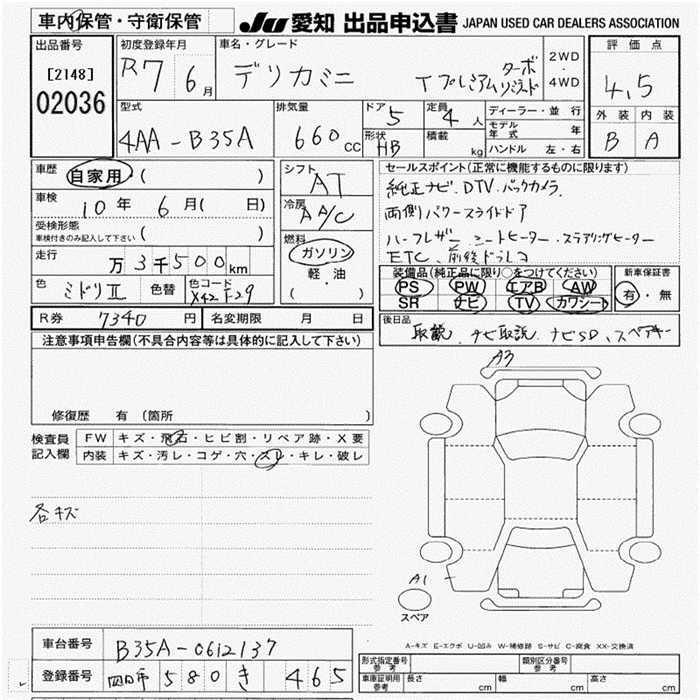 車内保管・守衛保管
JU 愛知 出品申込書 JAPAN USED CAR DEALERS ASSOCIATION
出品番号
[2148]
02036
初度登録年月
R7 6月
車名・グレード
デリカミニ
ターボ
Tプレミアムリミテッド
2WD
・
4WD
評価点
4.5
外装 内装
B A
型式
4AA-B35A
排気量
660cc
ドア
5
定員
4人
形状
HB
積載
kg
ディーラー・並行
モデル年式 年
ハンドル 左・右
車歴
自家用 ( )
車検
10年 6月( 日)
受検形態
車検付きのみ記入して下さい ( )
走行
万3千500km
色
ミドリⅡ
色替
色コード
X42 F29
シフト
AT
冷房
AA/C
燃料
ガソリン
軽・油
( )
セールスポイント(正常に機能するものに限ります)
純正ナビ、DTV、バックカメラ、
両側パワースライドドア
ハーフレザー、シートヒーター・ステアリングヒーター
ETC、前後ドラレコ
装備品(純正品に限り○をつけてください)
PS PW エアB AW
SR ナビ TV カワシート
新車保証書
有・無
R券 7340円
名変期限 月 日
後日品
取説、ナビ取説、ナビSD、スペアキー
注意事項申告欄(不具合内容等は具体的に記入して下さい)
修復歴 有(箇所 )
検査員
記入欄
FW キズ・飛石・ヒビ割・リペア跡・X要
内装 キズ・汚レ・コゲ・穴・スレ・キレ・破レ
各キズ
A3
A1
スペア
A-キズ E-エクボ U-凹み W-補修跡 S-サビ C-腐食 XX-交換済
車台番号 B35A-0612137
登録番号 四日市 580 き 465
形式指定番号
参考
類別区分番号
参考
車庫証明用
参考
長さ cm 幅 cm 高さ cm